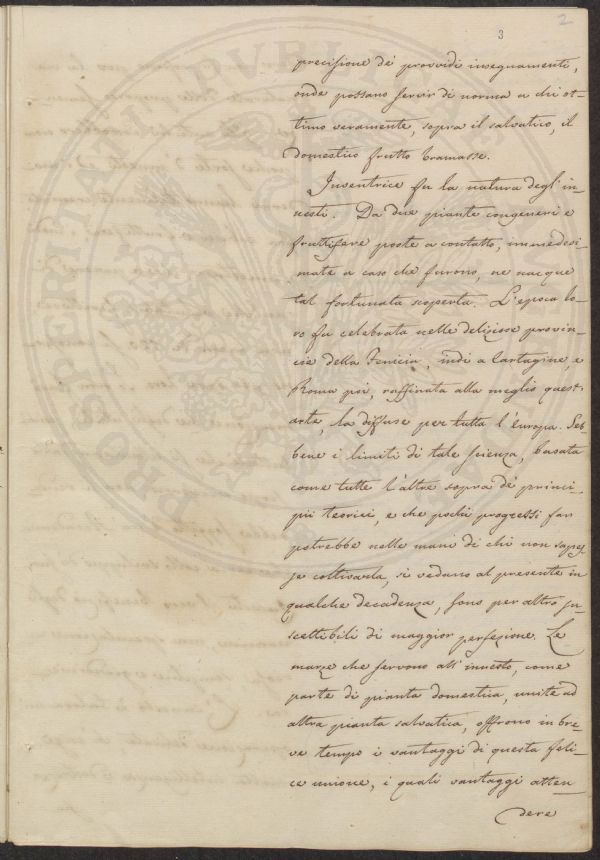 3
2
precisione de' provvidi insegnamenti,
onde possano servir di norma a chi ot-
timo veramente, sopra il salvatico, il
domestico frutto bramasse.
Inventrice fu la natura degl'in-
nesti. Da due piante congeneri e
fruttifere poste a contatto, immedesi-
mate a caso che furono, ne nacque
tal fortunata scoperta. L'epoca lo-
ro fu celebrata nelle deliziose provin-
cie della Fenicia, indi a Cartagine, e
Roma poi, raffinata alla meglio quest'
arte, la diffuse per tutta l'europa. Seb-
bene i limiti di tale scienza, basata
come tutte l'altre sopra de' princi-
pii teorici, e che pochi progressi far
potrebbe nelle mani di chi non sapes-
se coltivarla, si vedano al presente in
qualche decadenza, sono per altro su-
scettibili di maggior perfezione. Le
marze che servono all'innesto, come
parte di pianta domestica, unite ad
altra pianta salvatica, offrono in bre-
ve tempo i vantaggi di questa feli-
ce unione, i quali vantaggi atten
dere